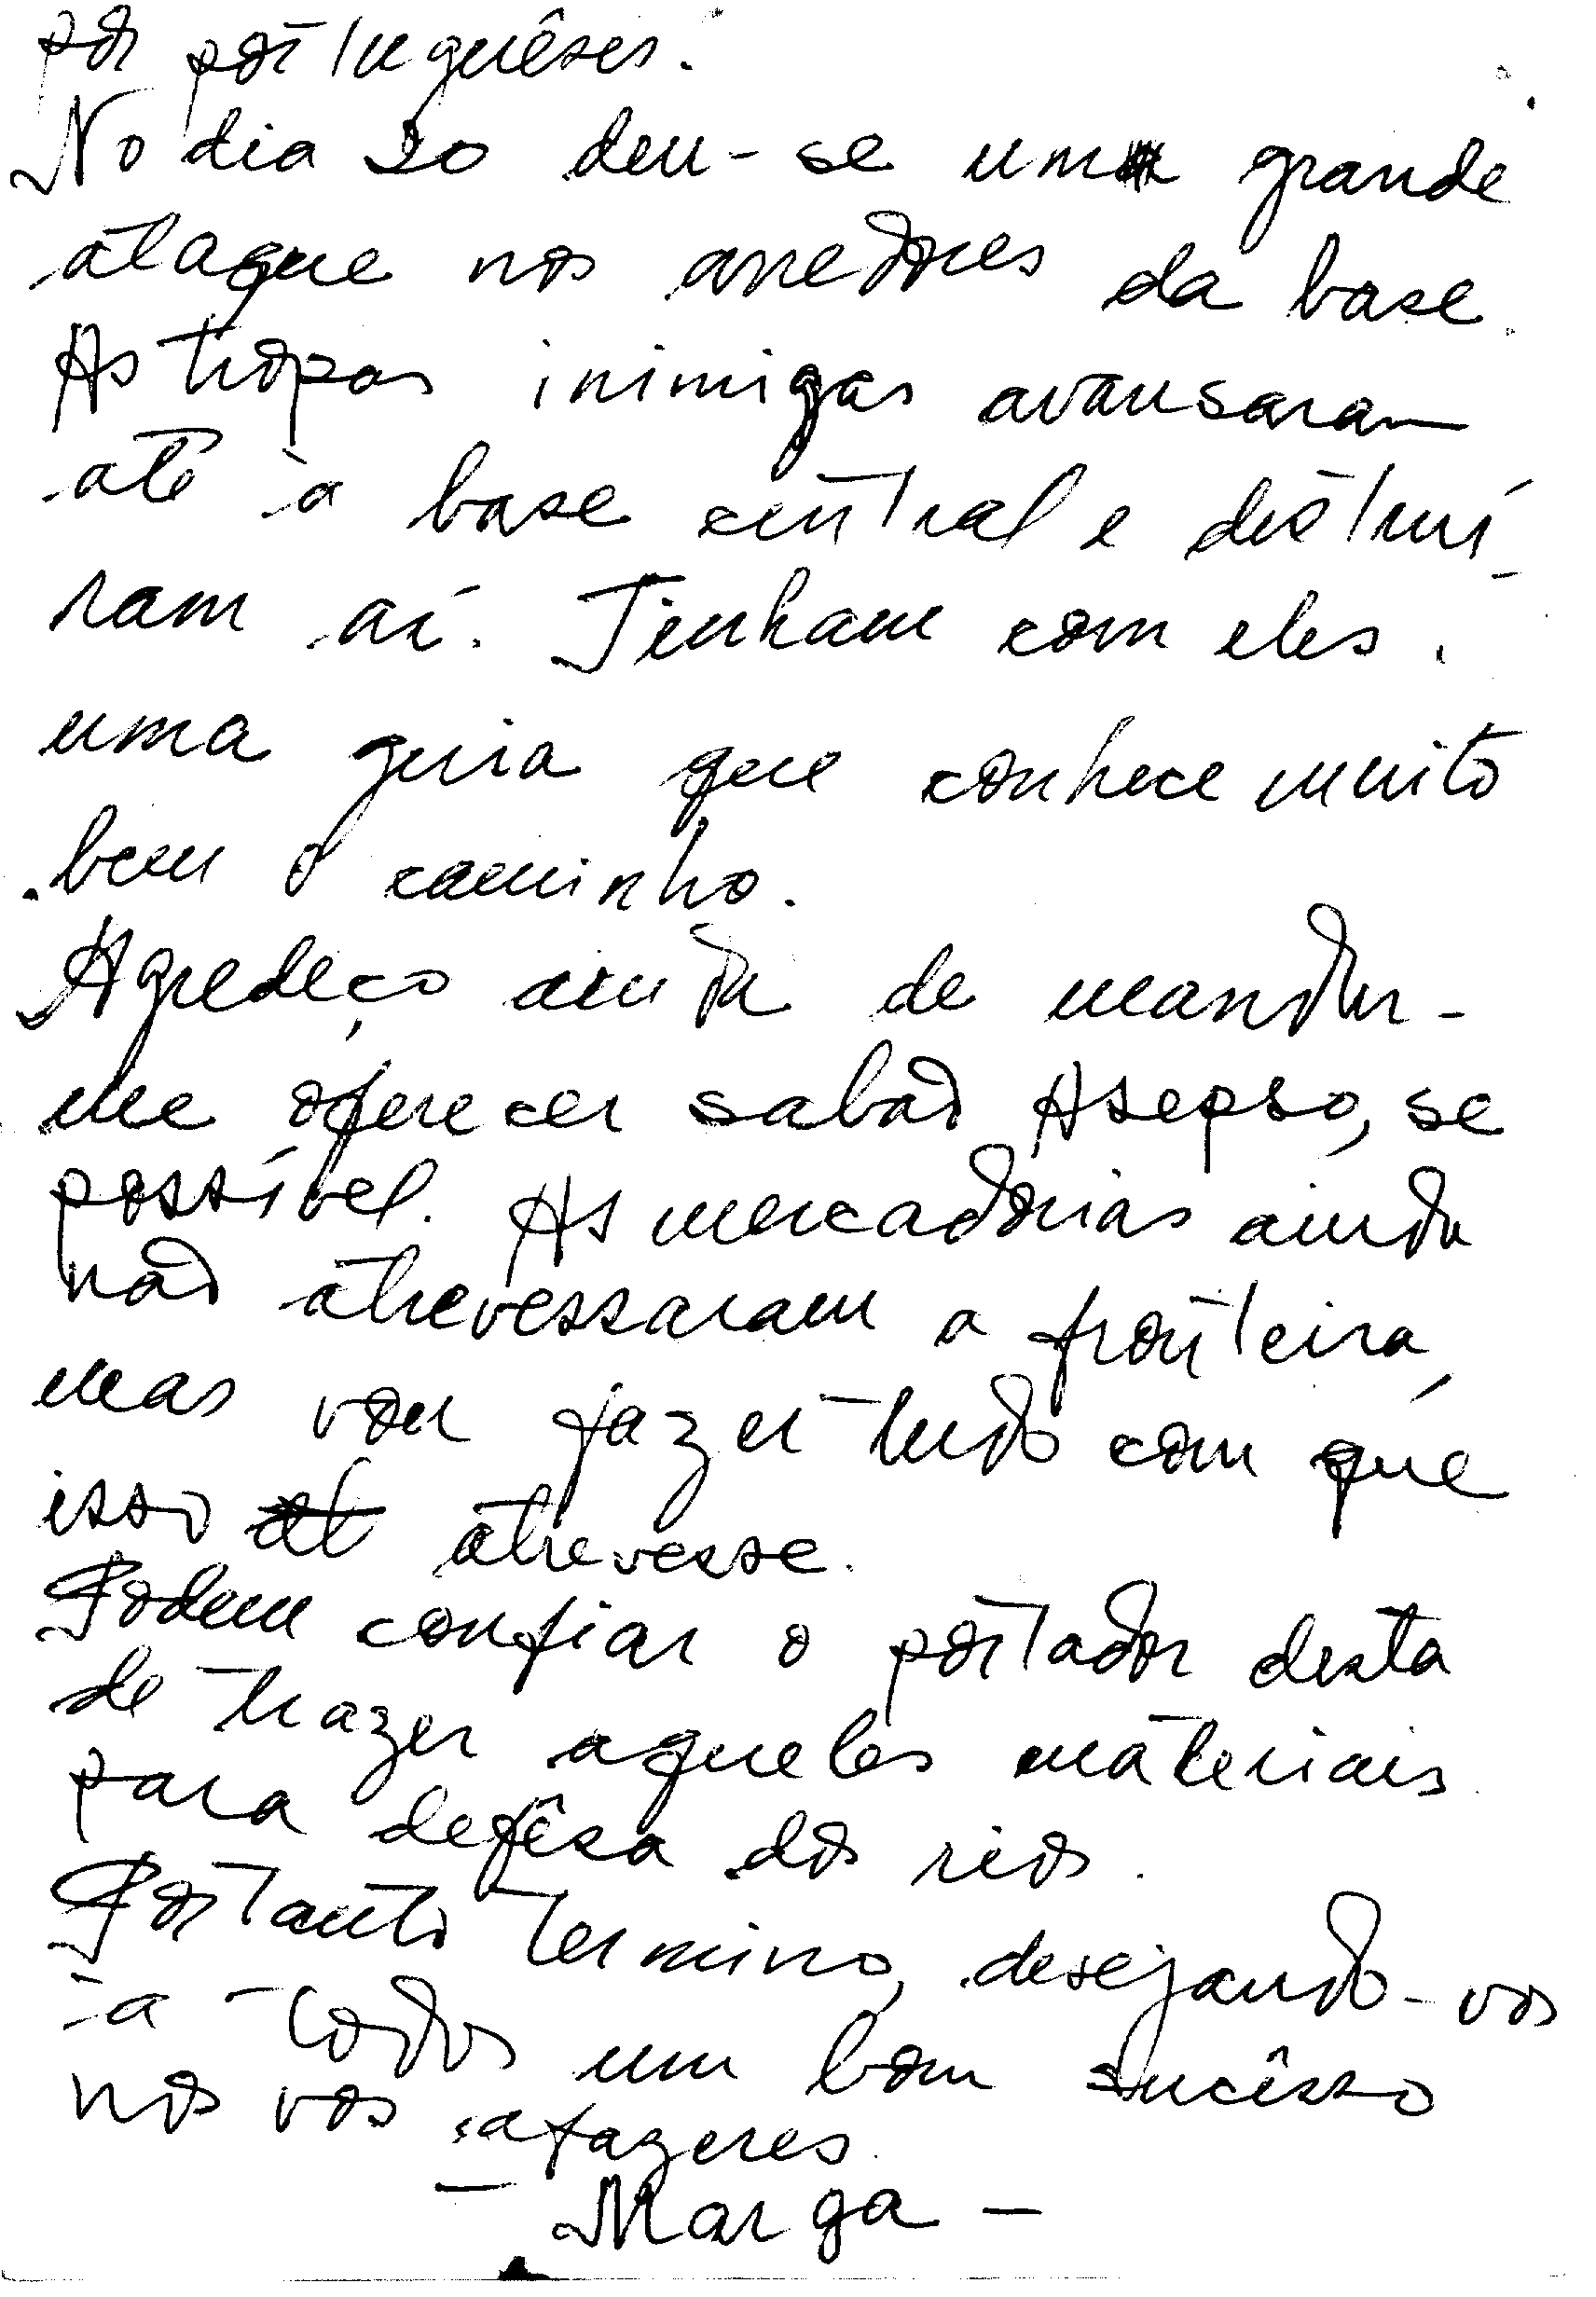 por portuguêses.
No dia 20 deu-se um grande
ataque nos arredores da base.
As tropas inimigas avansaram
até à base central e destruí-
ram aí. Tinham com eles
uma guia que conhece muito
bem o caminho.
Agredeço ainda de mandar-
me oferecer sabão Asepso, se
possível. As mercadorias ainda
não atrevessaram a fronteira,
mas vou fazer tudo com que
isso at atrevesse.
Podem confiar o portador desta
de trazer aqueles materiais
para defêsa dos rios.
Portanto termino, desejando-vos
à todos um bom sucêsso
nos vos afazeres.
- Marga -